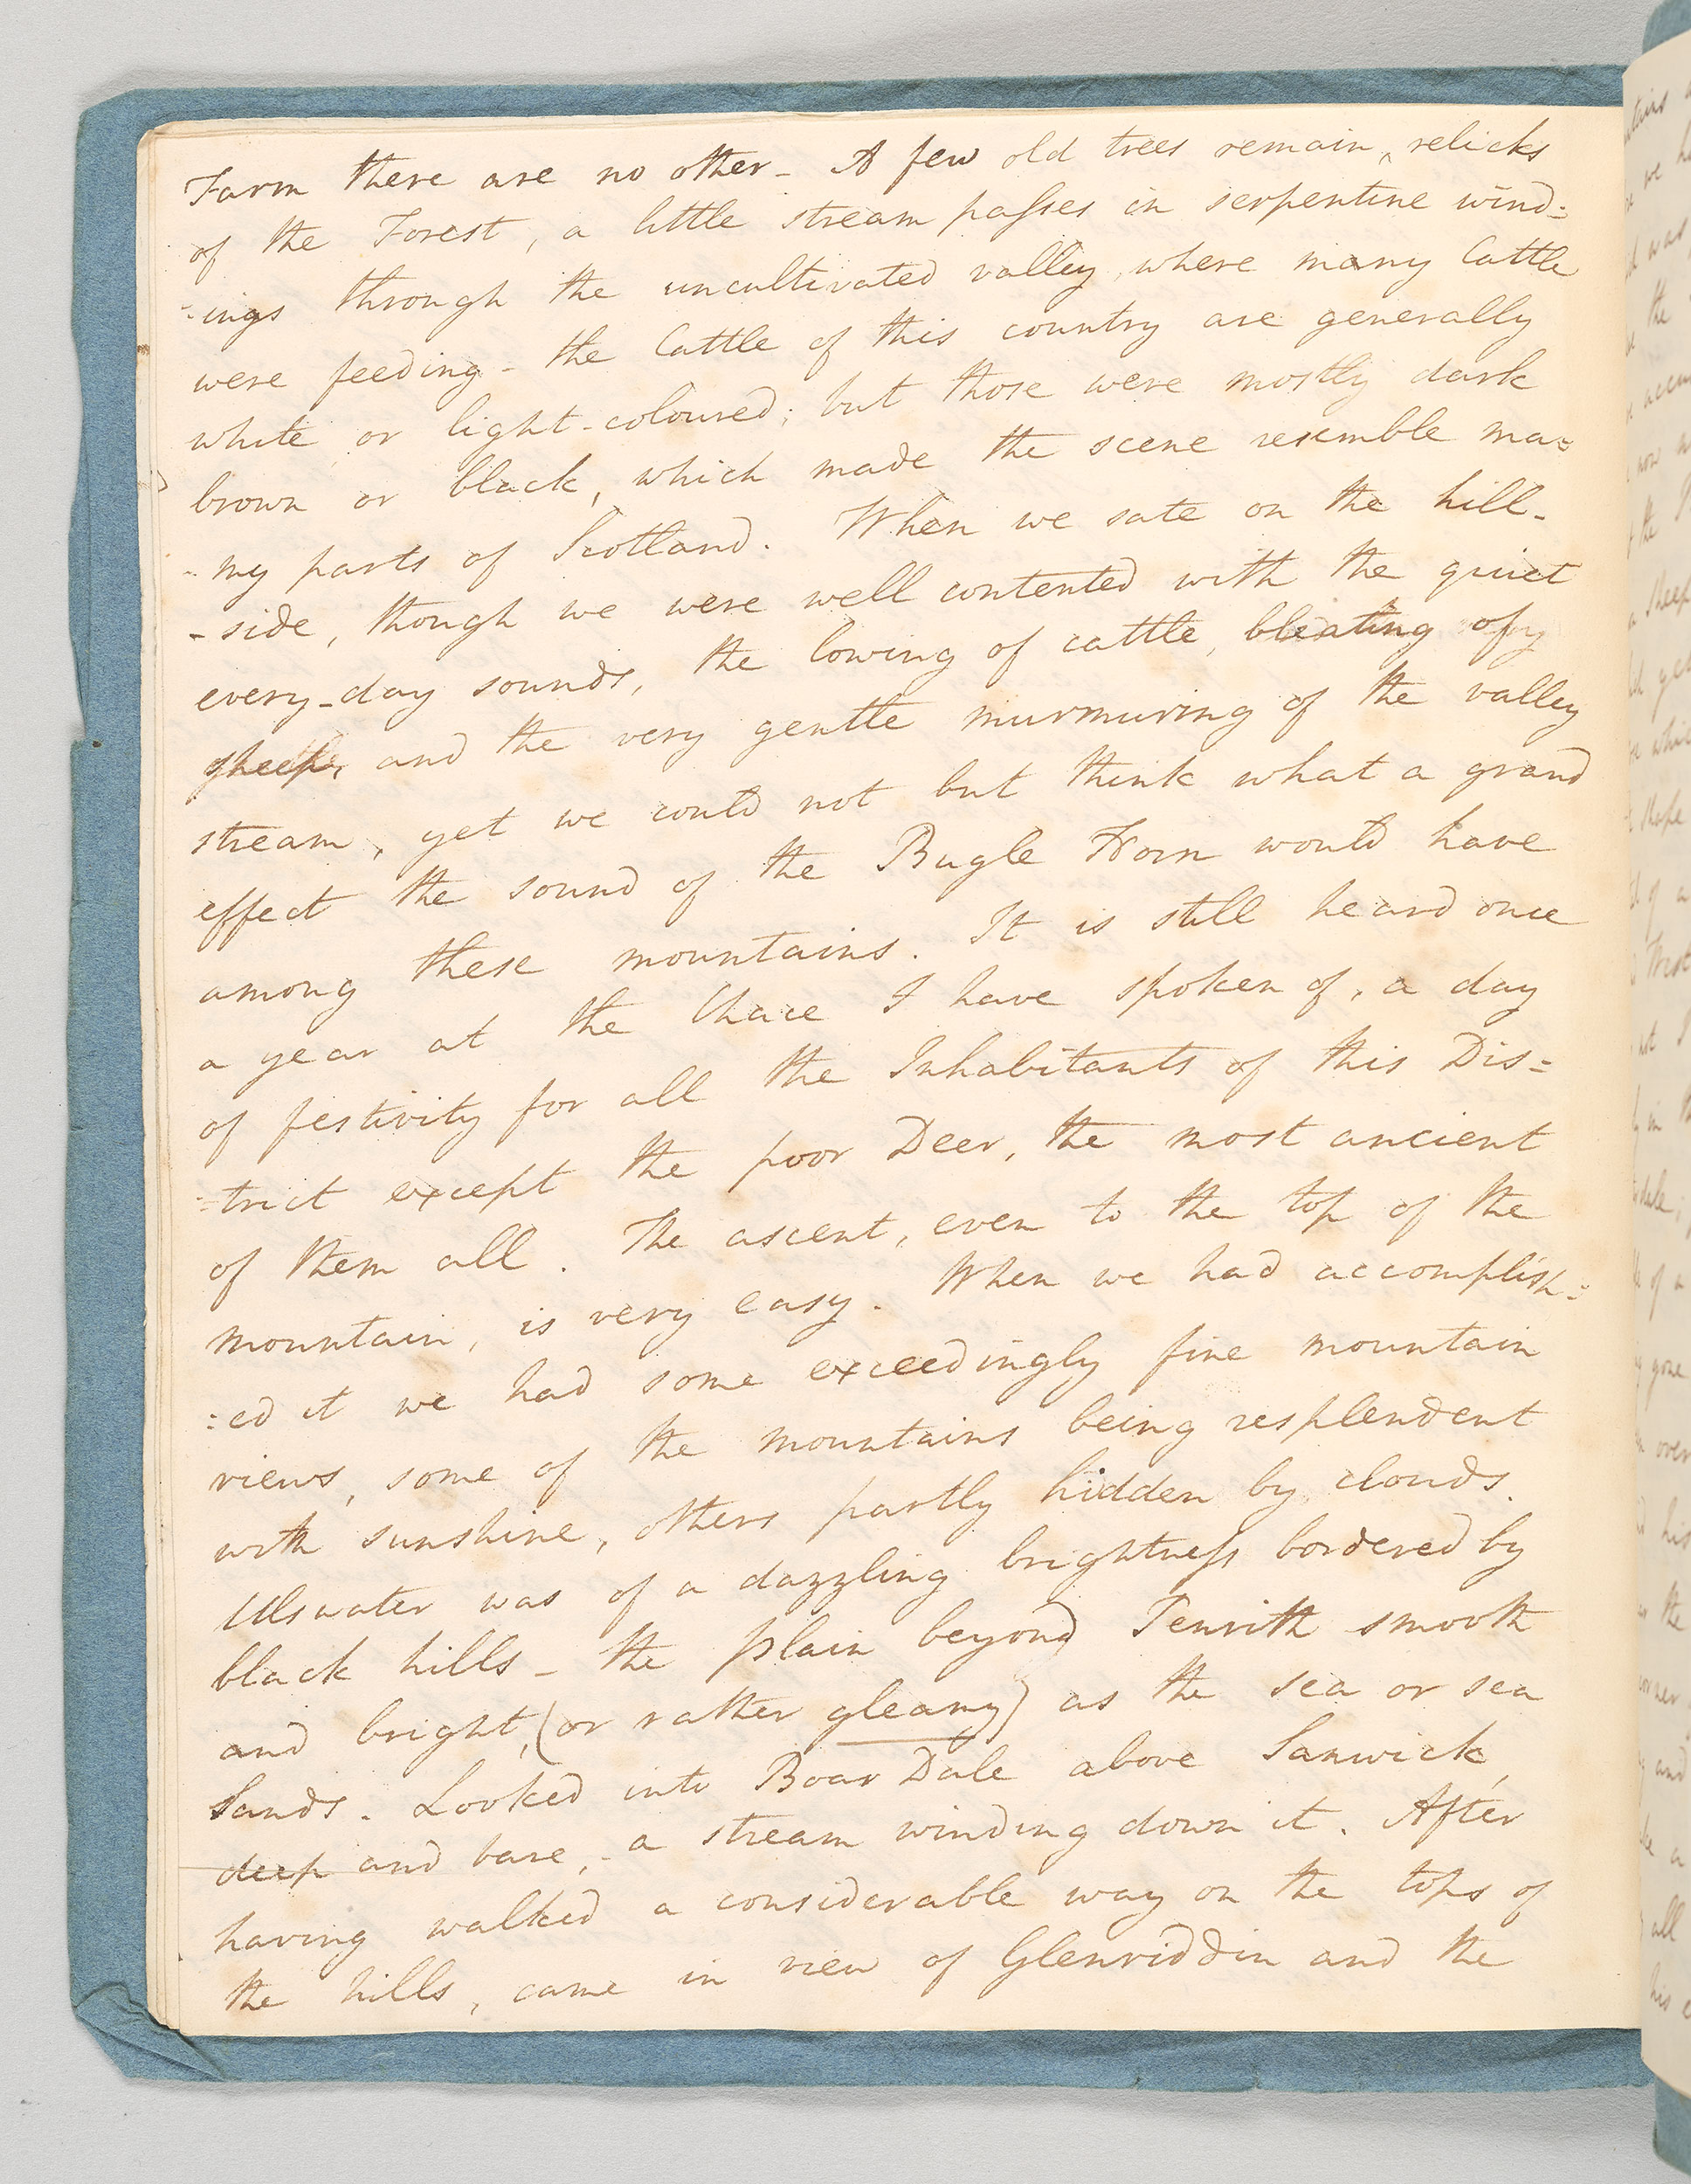 Farm there are no other - A few old trees remain, relicks
of the Forest, a little stream passes in serpentine wind=
=ings through the uncultivated valley, where many Cattle
were feeding - the Cattle of this country are generally
white, or light-coloured; but those were mostly dark
brown or black, which made the scene resemble ma=
-ny parts of Scotland. When we sate on the hill-
-side, though we were well contented with the quiet
every-day sounds, the lowing of cattle, bleating of
sheep, and the very gentle murmuring of the valley
stream, yet we could not but think what a grand
effect the sound of the Bugle Horn would have
among these mountains. It is still heard once
a year at the Chace I have spoken of, a day
of festivity for all the Inhabitants of this Dis=
=trict except the poor Deer, the most ancient
of them all. The ascent, even to the top of the
mountain, is very easy. When we had accomplish=
=ed it we had some exceedingly fine mountain
views, some of the mountains being resplendent
with sunshine, others partly hidden by clouds.
Ulswater was of a dazzling brightness bordered by
black hills - the plain beyond Penrith smooth
and bright, (or rather gleamy) as the sea or sea
Sands. Looked into Boar Dale above Sanwick,
deep and bare, - a stream winding down it. After
having walked a considerable way on the tops of
the hills, came in view of Glenriddin and the